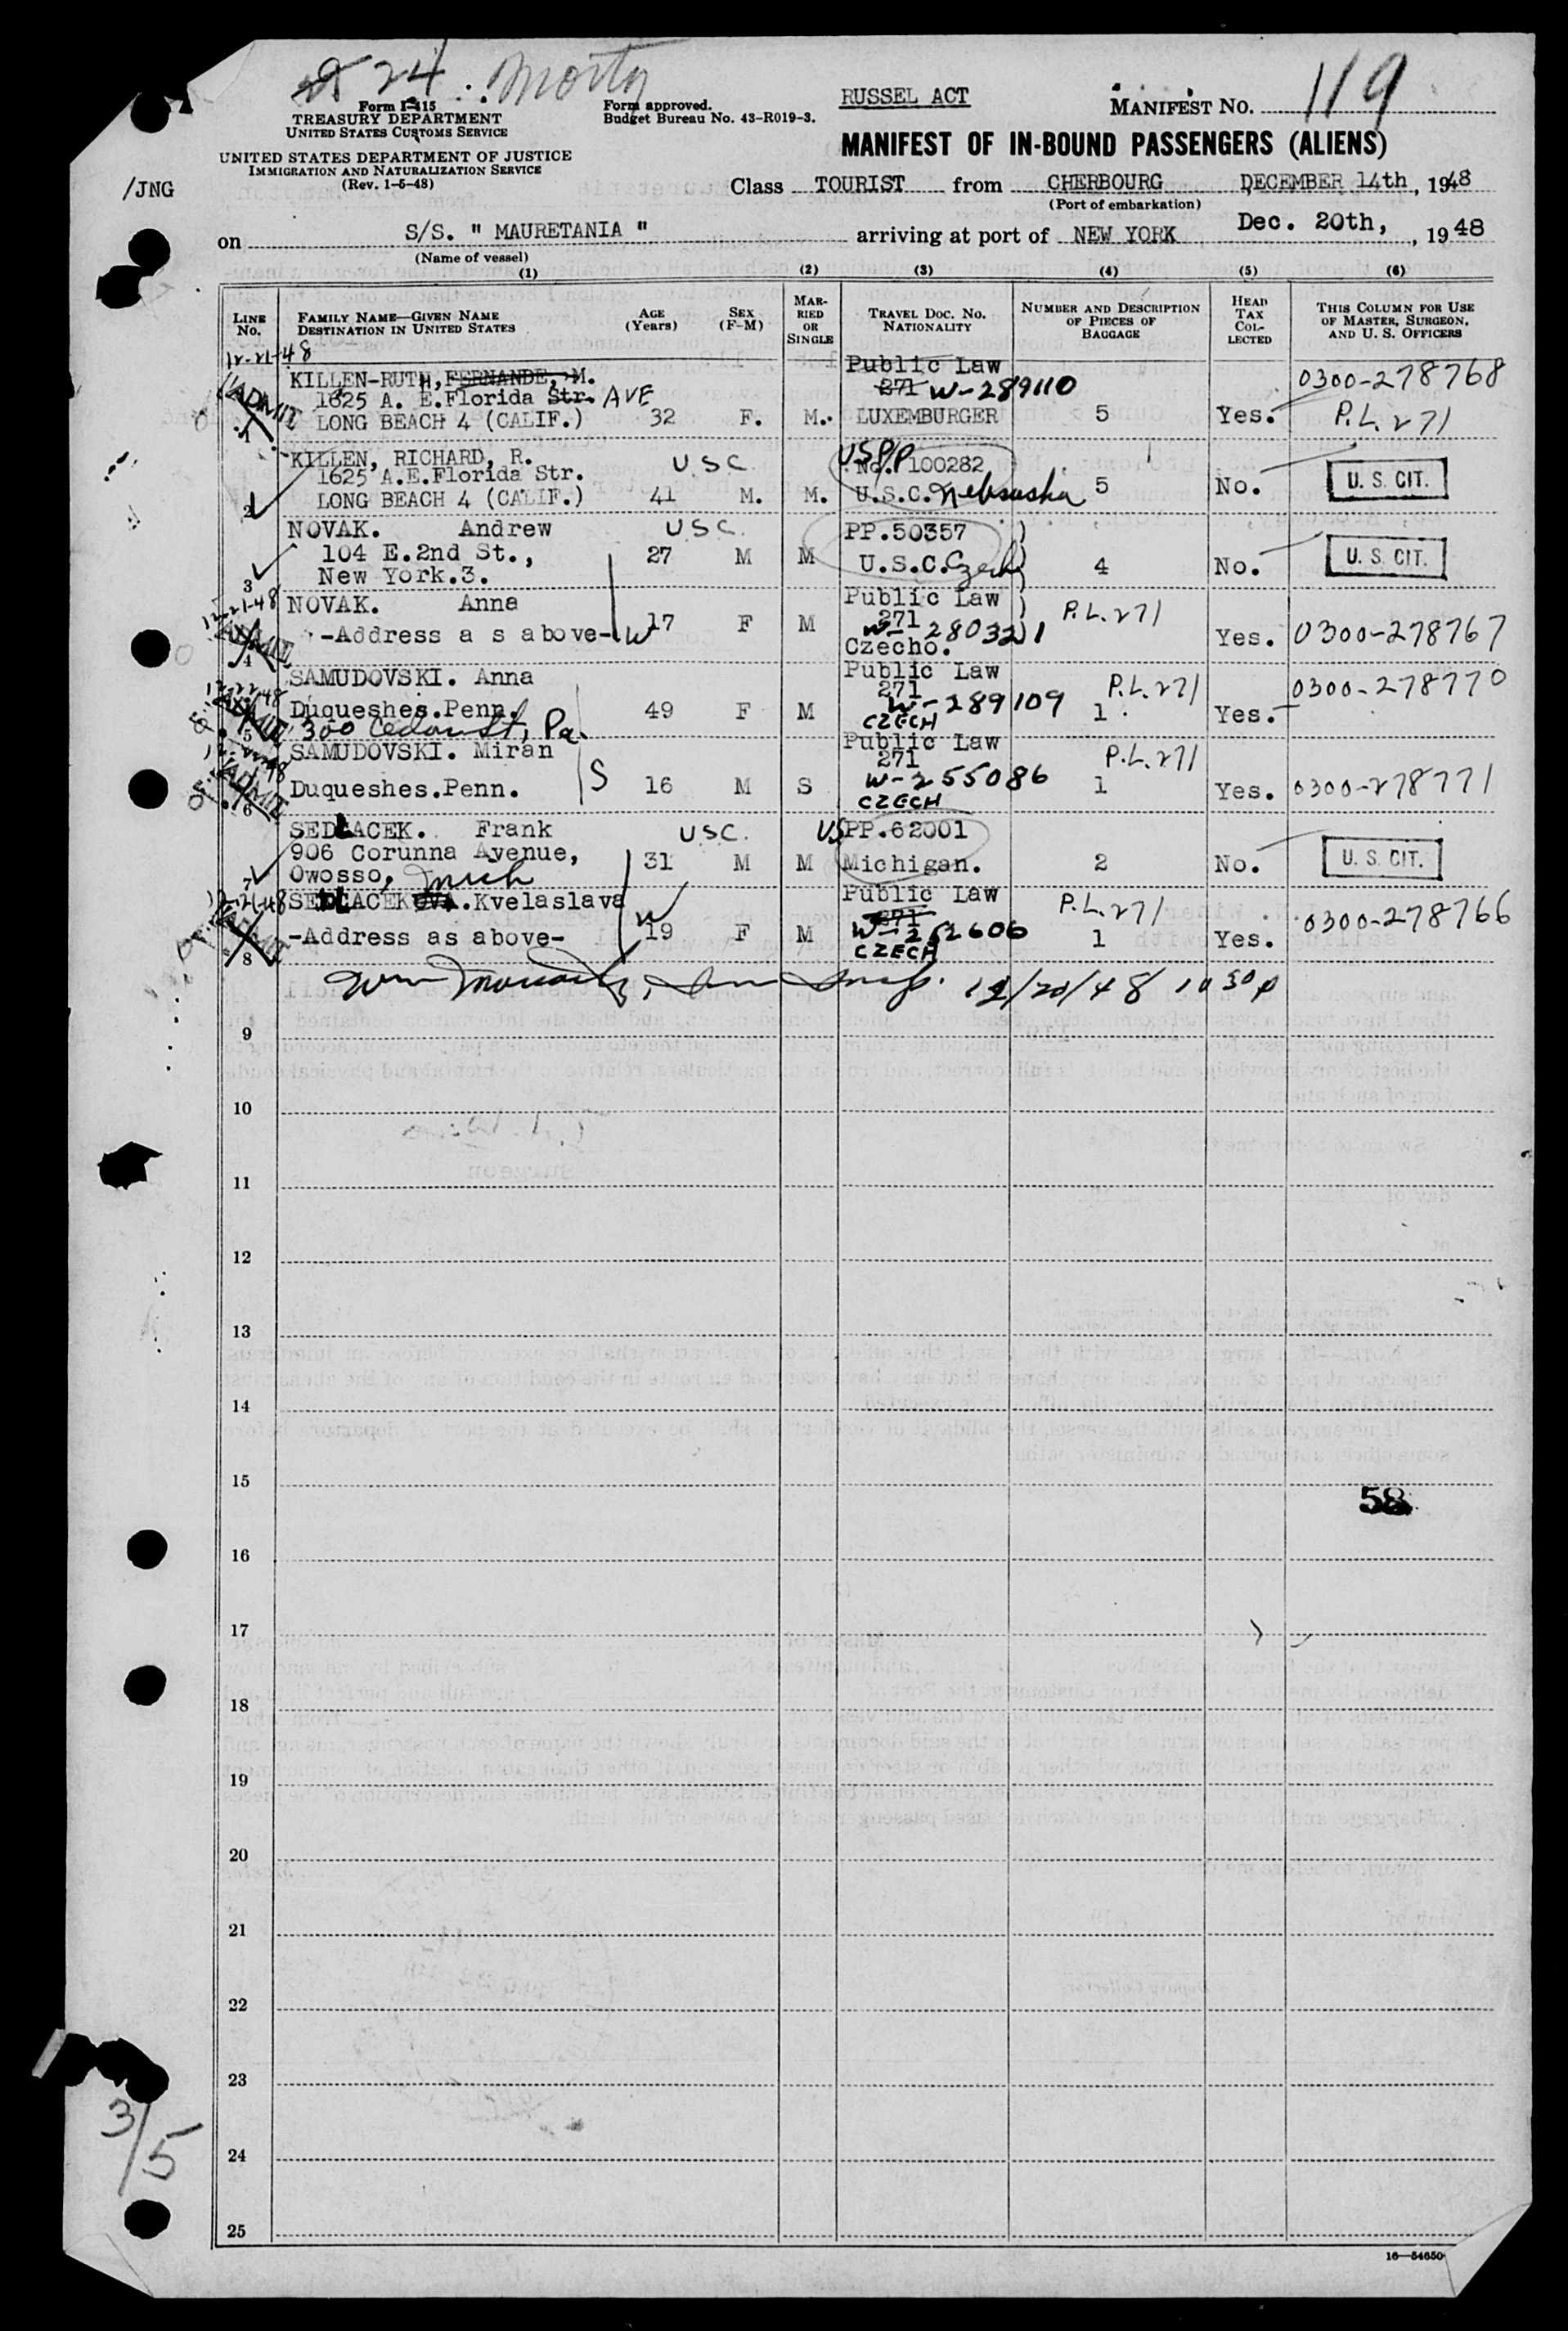 24
Form I-415
TREASURY DEPARTMENT
UNITED STATES CUSTOMS SERVICE
UNITED STATES DEPARTMENT OF JUSTICE
IMMIGRATION AND NATURALIZATION SERVICE
(Rev. 1-6-48)
/JNG
Form approved.
Budget Bureau No. 43-R019-3.
RUSSEL ACT
MANIFEST NO. 119
MANIFEST OF IN-BOUND PASSENGERS (ALIENS)
Class TOURIST from CHERBOURG DECEMBER 14th, 1948
(Port of embarkation)
on S/S. " MAURETANIA " arriving at port of NEW YORK Dec. 20th, , 1948
(Name of vessel)
(1) (2) (3) (4) (5) (6)
LINE No.
FAMILY NAME—GIVEN NAME
DESTINATION IN UNITED STATES
AGE (Years)
SEX (F-M)
MARRIED OR SINGLE
TRAVEL DOC. NO. NATIONALITY
NUMBER AND DESCRIPTION OF PIECES OF BAGGAGE
HEAD TAX COLLECTED
THIS COLUMN FOR USE OF MASTER, SURGEON, AND U. S. OFFICERS
12-21-48
KILLEN-RUTH, FERNANDE, M. Public Law 0300-278768
1625 A. E.Florida Str. AVE 271 W-289110
ADMIT 1 LONG BEACH 4 (CALIF.) 32 F. M. LUXEMBURGER 5 Yes. P.L. 271
KILLEN, RICHARD, R. USC US P/P
1625 A.E.Florida Str. No. 100282
2 LONG BEACH 4 (CALIF.) 41 M. M. U.S.C. Nebraska 5 No. U. S. CIT.
NOVAK. Andrew USC PP.50357
104 E.2nd St., 27 M M U.S.C. Czech 4 No. U. S. CIT.
3 New York.3.
12-21-48 NOVAK. Anna Public Law P.L. 271
ADMIT -Address a s above- W 17 F M 271 W-280321 Yes. 0300-278767
4 Czecho.
SAMUDOVSKI. Anna Public Law P.L. 271 0300-278770
12-22-48 271
ADMIT Duqueshes.Penn. 49 F M W-289109 1 Yes.
5 300 Cedar St, Pa. CZECH
SAMUDOVSKI. Miran Public Law P.L. 271
271
ADMIT Duqueshes.Penn. S 16 M S W-255086 1 Yes. 0300-278771
6 CZECH
SEDLACEK. Frank USC US PP.62001
906 Corunna Avenue, 31 M M Michigan. 2 No. U. S. CIT.
7 Owosso, Mich
12-21-48 SEDLACEKOVA.Kvelaslava Public Law P.L. 271 0300-278766
271
ADMIT -Address as above- W 19 F M W-252606 1 Yes.
8 CZECH
12/20/48 10 30 p
9
10
11
12
13
14
15
58
16
17
18
19
20
21
22
23
24
25
3/5
16—54650